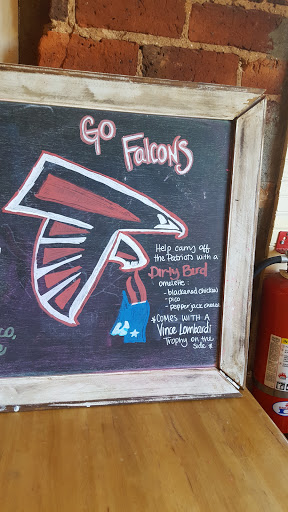 Go
Falcons
Help carry off
the Patriots with a
Dirty Bird
omelette:
- blackened chicken
- pico
- pepper jack cheese
* COMES WITH A
Vince Lombardi
Trophy on the
side *